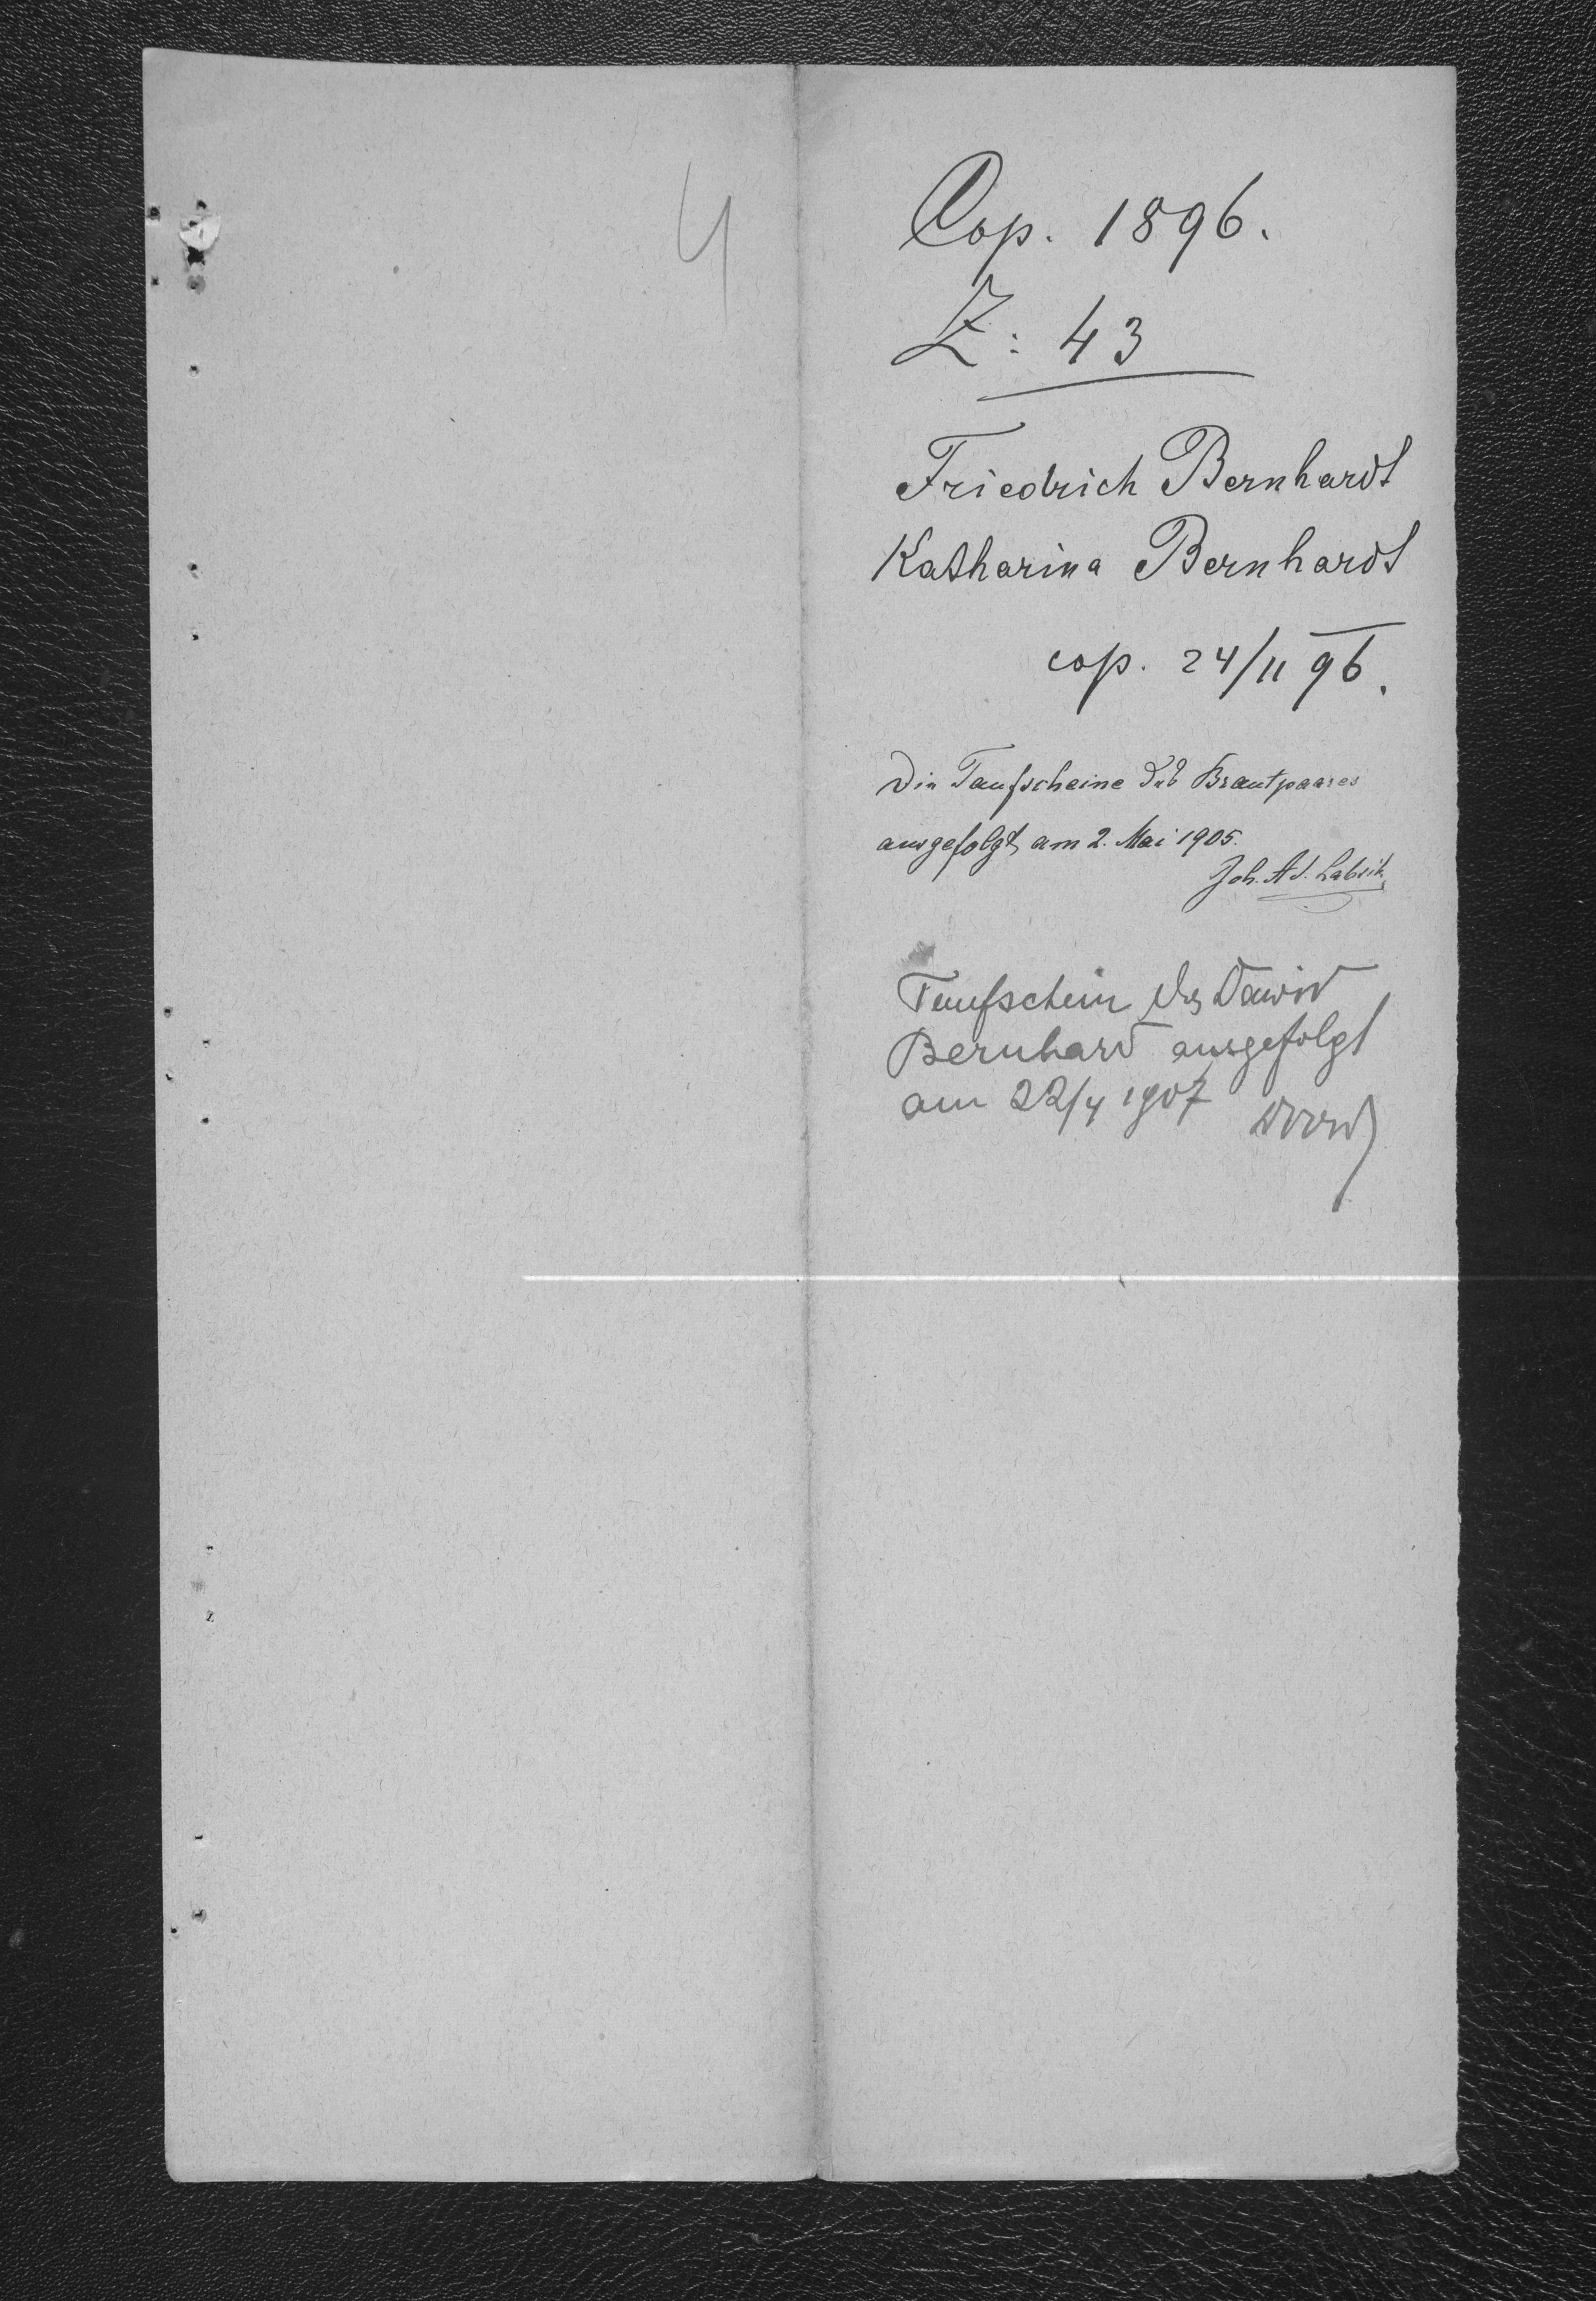 4
Cop. 1896.
Z: 43
Friedrich Bernhardt
Katharina Bernhardt
cop. 24/11 96.
Die Taufscheine des Brautpaares
ausgefolgt am 2. Mai 1905.
Joh. Ad.
Taufschein des David
Bernhard ausgefolgt
am 22/4 1907